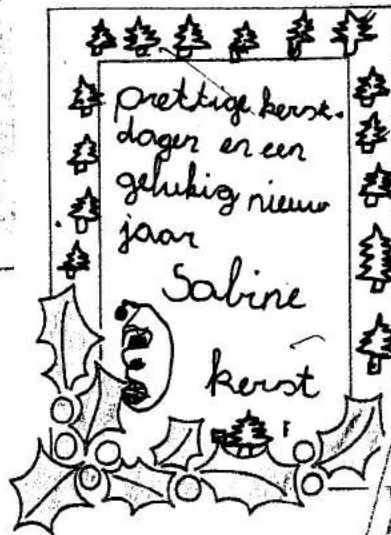 prettige kerst.
dagen en een
gelukig nieuw
jaar
Sabine
kerst